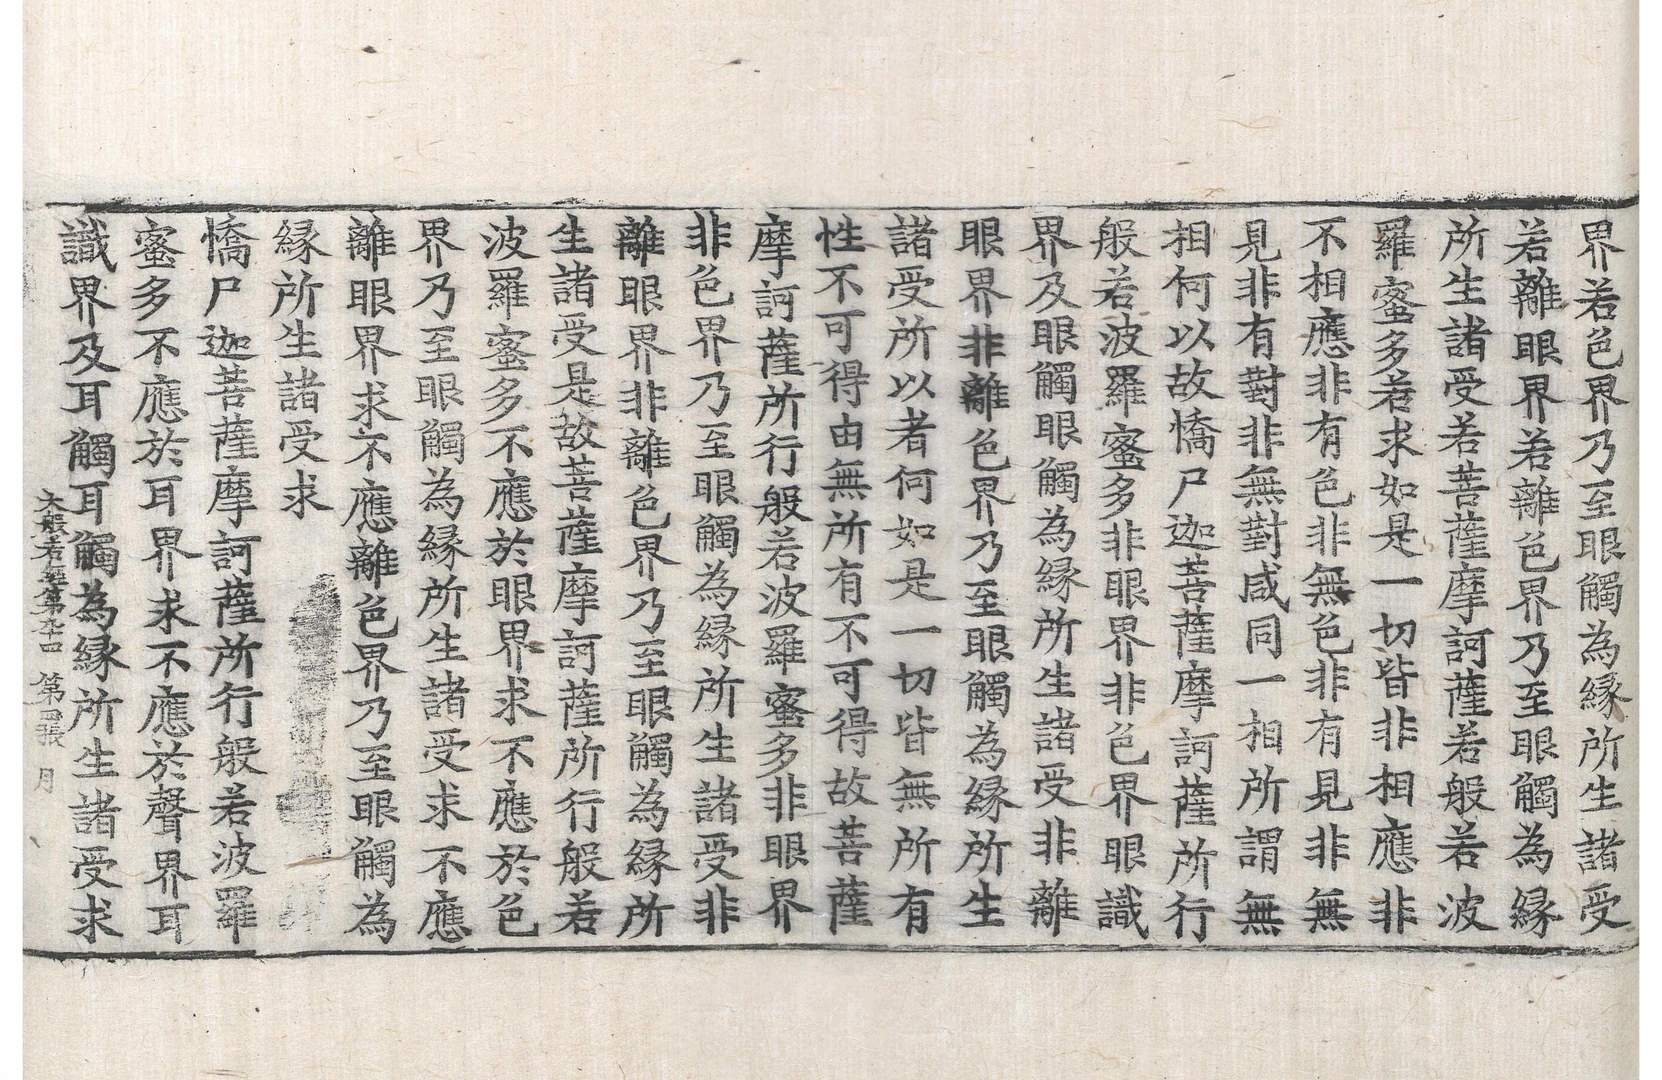 界若色界乃至眼觸為縁所生諸受
若離眼界若離色界乃至眼觸為縁
所生諸受若菩薩摩訶薩若般若波
羅蜜多若求如是一切皆非相應非
不相應非有色非無色非有見非無
見非有對非無對咸同一相所謂無
相何以故憍尸迦菩薩摩訶薩所行
般若波羅蜜多非眼界非色界眼識
界及眼觸眼觸為縁所生諸受非離
眼界非離色界乃至眼觸為縁所生
諸受所以者何如是一切皆無所有
性不可得由無所有不可得故菩薩
摩訶薩所行般若波羅蜜多非眼界
非色界乃至眼觸為縁所生諸受非
離眼界非離色界乃至眼觸為縁所
生諸受是故菩薩摩訶薩所行般若
波羅蜜多不應於眼界求不應於色
界乃至眼觸為縁所生諸受求不應
離眼界求不應離色界乃至眼觸為
縁所生諸受求
憍尸迦菩薩摩訶薩所行般若波羅
蜜多不應於耳界求不應於聲界耳
識界及耳觸耳觸為縁所生諸受求
大般若經第九十四 第四張 月